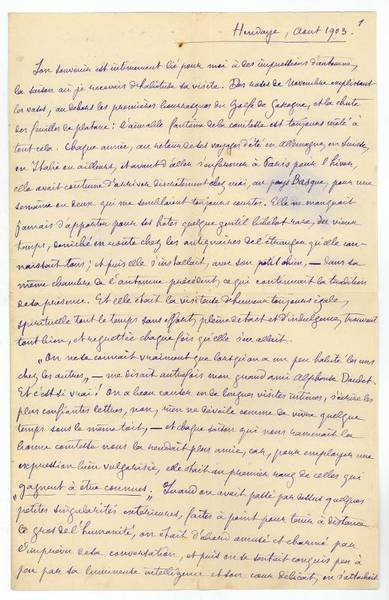 Hendaye, Août 1903. 1
Son souvenir est intimement lié pour moi à des impressions d'automne,
la saison où je recevais d'habitude sa visite. Des roses de Novembre emplissant
les vases, au dehors les premières bourrasques du Golfe de Gascogne, et la chute
des feuilles de platane: l'aimable fantôme de la comtesse est toujours mêlé à
tout cela. Chaque année, au retour de ses voyages d'été en Allemagne, en Suisse,
en Italie ou ailleurs, et avant d'aller s'enfermer à Paris pour l'hiver,
elle avait coutume d'arriver discrètement chez moi, au pays Basque, pour une
semaine ou deux qui me semblaient toujours courtes. Elle ne manquait
jamais d'apporter pour ses hôtes quelque gentil bibelot rare, du vieux
temps, déniché en route chez les antiquaires de l'étranger qu'elle con-
naissait tous; et puis elle s'installait, avec son petit chien, — dans sa
même chambre de l'automne précédent, a qui continuait la tradition
de sa présence. Et elle était la visiteuse d'humeur toujours égale,
spirituelle tout le temps sans effort, pleine de tact et d'indulgence, trouvant
tout bien, et regrettée chaque fois qu'elle s'en allait.
"On ne se connaît vraiment que lorsqu'on a un peu habité les uns
chez les autres", — me disait autrefois mon grand ami Alphonse Daudet.
Et c'est si vrai! On a beau causer en de longues visites intimes, s'écrire les
plus confiantes lettres, non, rien ne dévoile comme de vivre quelque
temps sous le même toit, — et chaque saison qui nous ramenait la
bonne comtesse nous la rendait plus amie, car, pour employer une
expression bien vulgarisée, elle était au premier rang de celles qui
gagnent à être connues. Quand on avait passé par dessus quelques
petites singularités extérieures, faites à point pour tenir à distance
le gros de l'humanité, on était d'abord amusé et charmé par
l'imprévu de sa conversation, et puis on se sentait conquis peu à
peu par sa lumineuse intelligence et son cœur délicat, on s'attachait